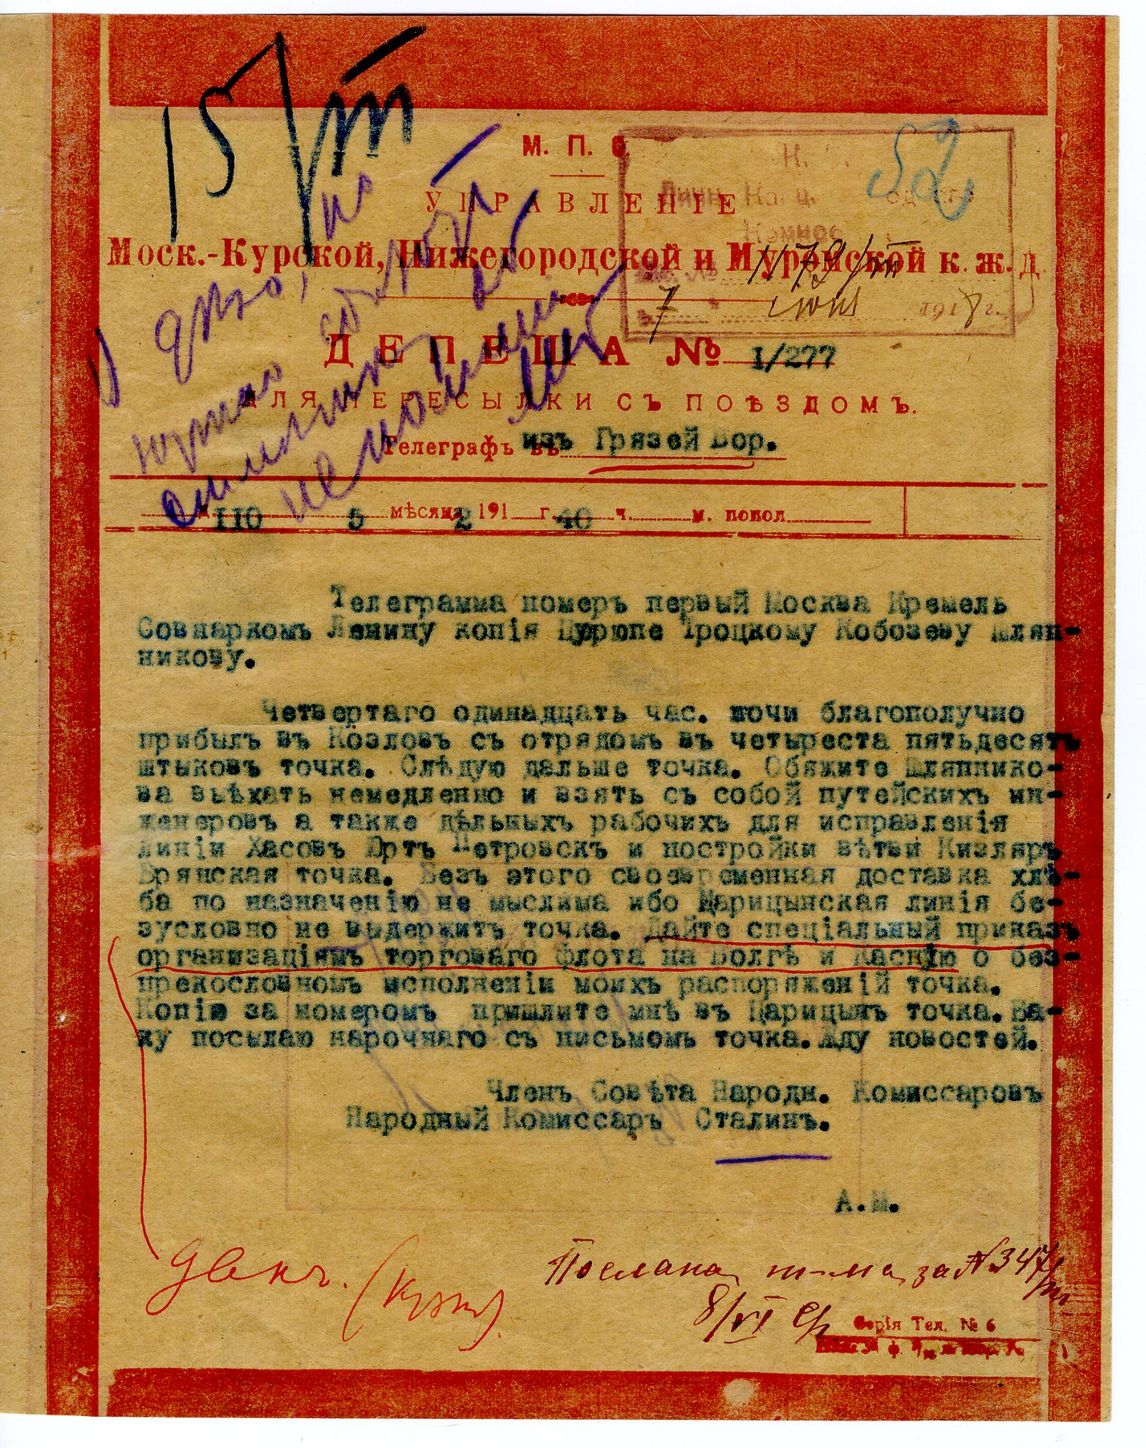 15/III
52
М. П. С.
УПРАВЛЕНІЕ
Моск.-Курской, Нижегородской и Муромской к. ж. д.
7 июня 1918 г.
ДЕПЕША № 1/277
ДЛЯ ПЕРЕСЫЛКИ СЪ ПОѢЗДОМЪ.
Телеграфъ въ изъ Грязей Вор.
110 5 мѣсяца 2 191 г. 40 ч. м. попол.
Телеграмма номеръ первый Москва Кремель
Совнаркомъ Ленину копія Цурюпе Троцкому Кобозеву Шляп-
никову.
Четвертаго одинадцать час. ночи благополучно
прибылъ въ Козловъ съ отрядомъ въ четыреста пятьдесятъ
штыковъ точка. Слѣдую дальше точка. Обяжите Шляпнико-
ва выѣхать немедленно и взять съ собой путейскихъ ин-
женеровъ а также дѣльныхъ рабочихъ для исправленія
линіи Хасовъ Юртъ Петровскъ и постройки вѣтви Кизляръ
Брянская точка. Безъ этого своевременная доставка хлѣ-
ба по назначенію не мыслима ибо Царицынская линія бе-
зусловно не выдержитъ точка. Дайте спеціальный приказъ
организаціямъ торговаго флота на Волгѣ и Каспію о без-
прекословномъ исполненіи моихъ распоряженій точка.
Копію за номеромъ пришлите мнѣ въ Царицынъ точка. Ба-
ку посылаю нарочнаго съ письмомъ точка. Жду новостей.
Членъ Совѣта Народн. Комиссаровъ
Народный Комиссаръ Сталинъ.
А.М.
Послана т-ма за № 347/
8/VI
Серія Тел. № 6